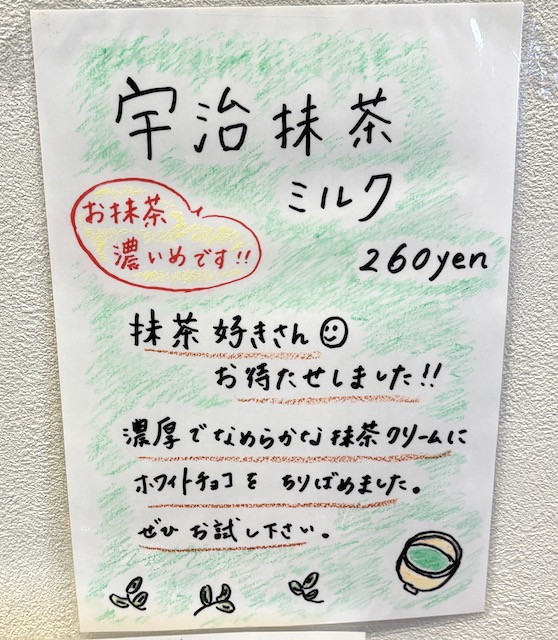 宇治抹茶
ミルク
お抹茶
濃いめです!!
260yen
抹茶好きさん
お待たせしました!!
濃厚でなめらかな抹茶クリームに
ホワイトチョコをちりばめました。
ぜひお試し下さい。